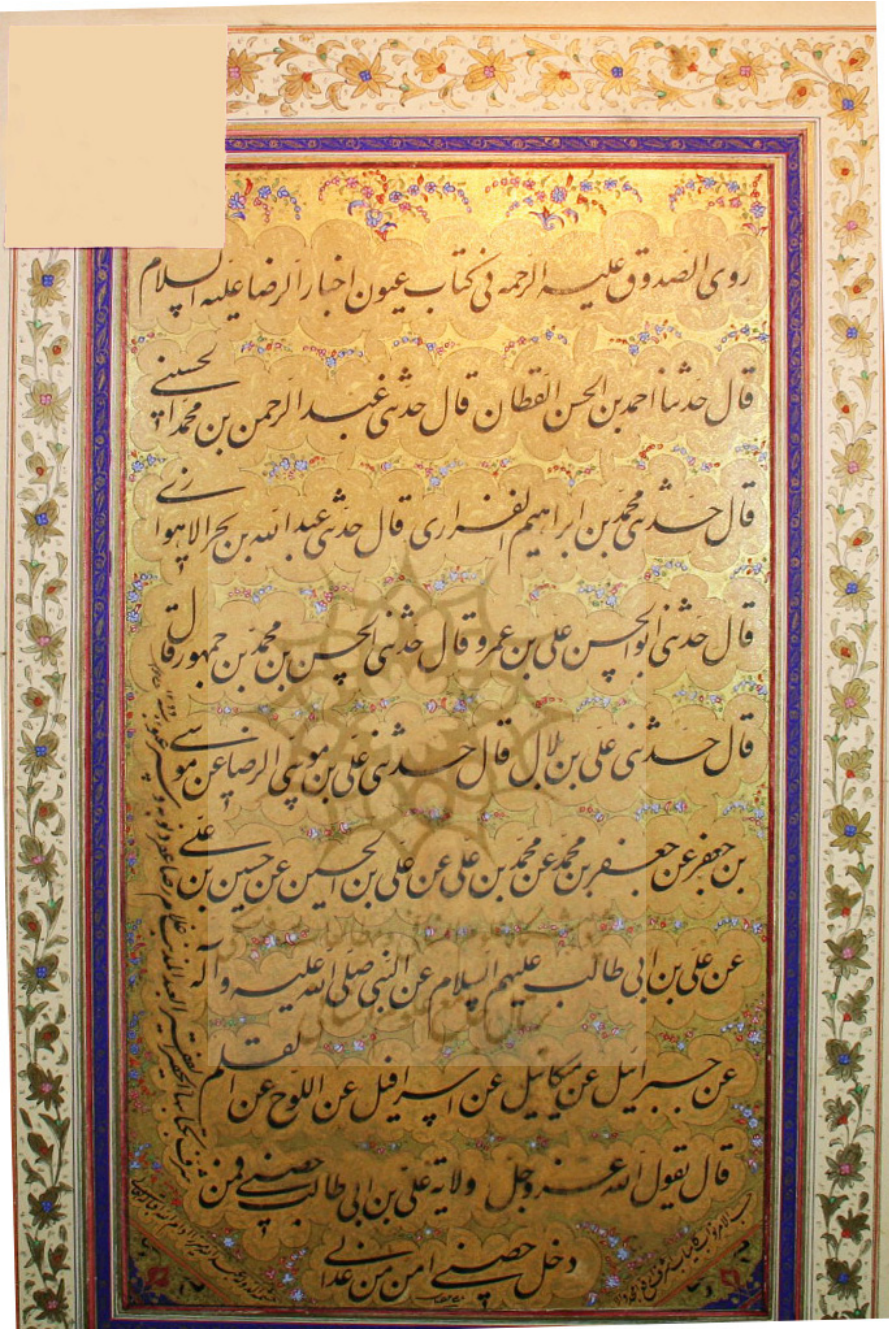 روی الصدوق علیه الرحمه فی کتاب عیون اخبار الرضا علیه السلام
قال حدثنا احمد بن الحسن القطان قال حدثنی عبد الرحمن بن محمد الحسینی
قال حدثنی محمد بن ابراهیم الفزاری قال حدثنی عبد الله بن بحر الاهوازی
قال حدثنی ابو الحسن علی بن عمرو قال حدثنی الحسن بن محمد بن جمهور قال
قال حدثنی علی بن بلال قال حدثنی علی بن موسی الرضا عن موسی
بن جعفر عن جعفر بن محمد عن محمد بن علی عن علی بن الحسین عن حسین بن علی
عن علی بن ابی طالب علیهم السلام عن النبی صلی الله علیه و آله
عن جبرائیل عن میکائیل عن اسرافیل عن اللوح عن القلم
قال یقول الله عز وجل ولایة علی بن ابی طالب حصنی فمن
دخل حصنی امن من عذابی
پژوهشگاه علوم انسانی و مطالعات فرهنگی
پرتال جامع علوم انسانی